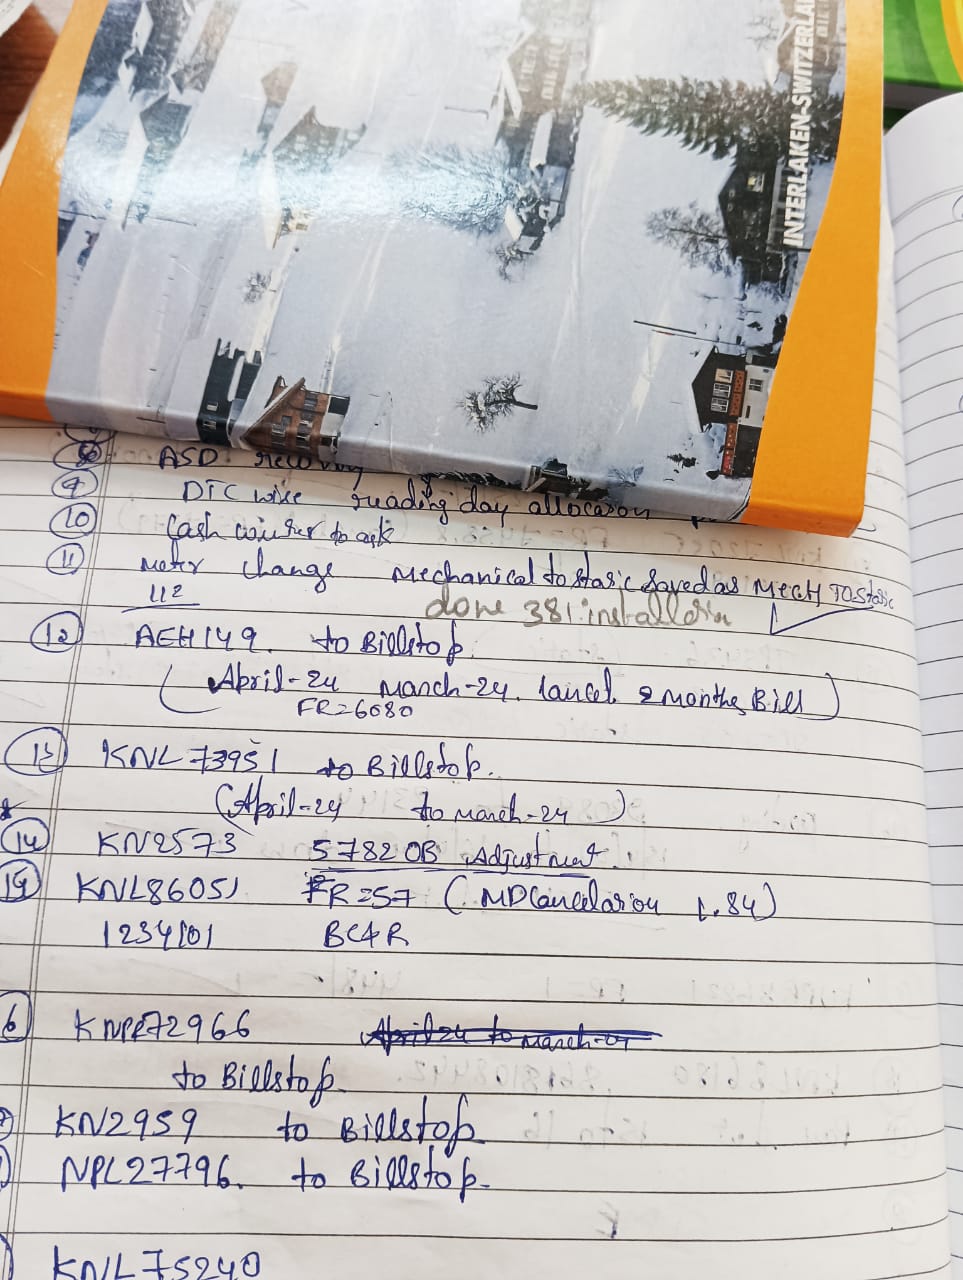 INTERLAKEN-SWITZERLA
8 ASD
9 DTC wise reading day allocation
10 Cash counter to ask
11 Meter Change Mechanical to static Saved as MECH TO-Static
112
done 381 installation
12 AEH149. to Billstop.
(April-24 March-24. Cancel 2 months Bill)
FR=6080
13 KNL73951 to Billstop.
(April-24 to march-24)
14 KN2573 5782 OB Adjustment.
15 KNL86051 FR=57 (MD Cancelation 1.84)
1234101 BC4R
6 KNPL72966 April 24 to march-24
to Billstop
7 KN2959 to Billstop
NPL27796. to Billstop.
KNL75240